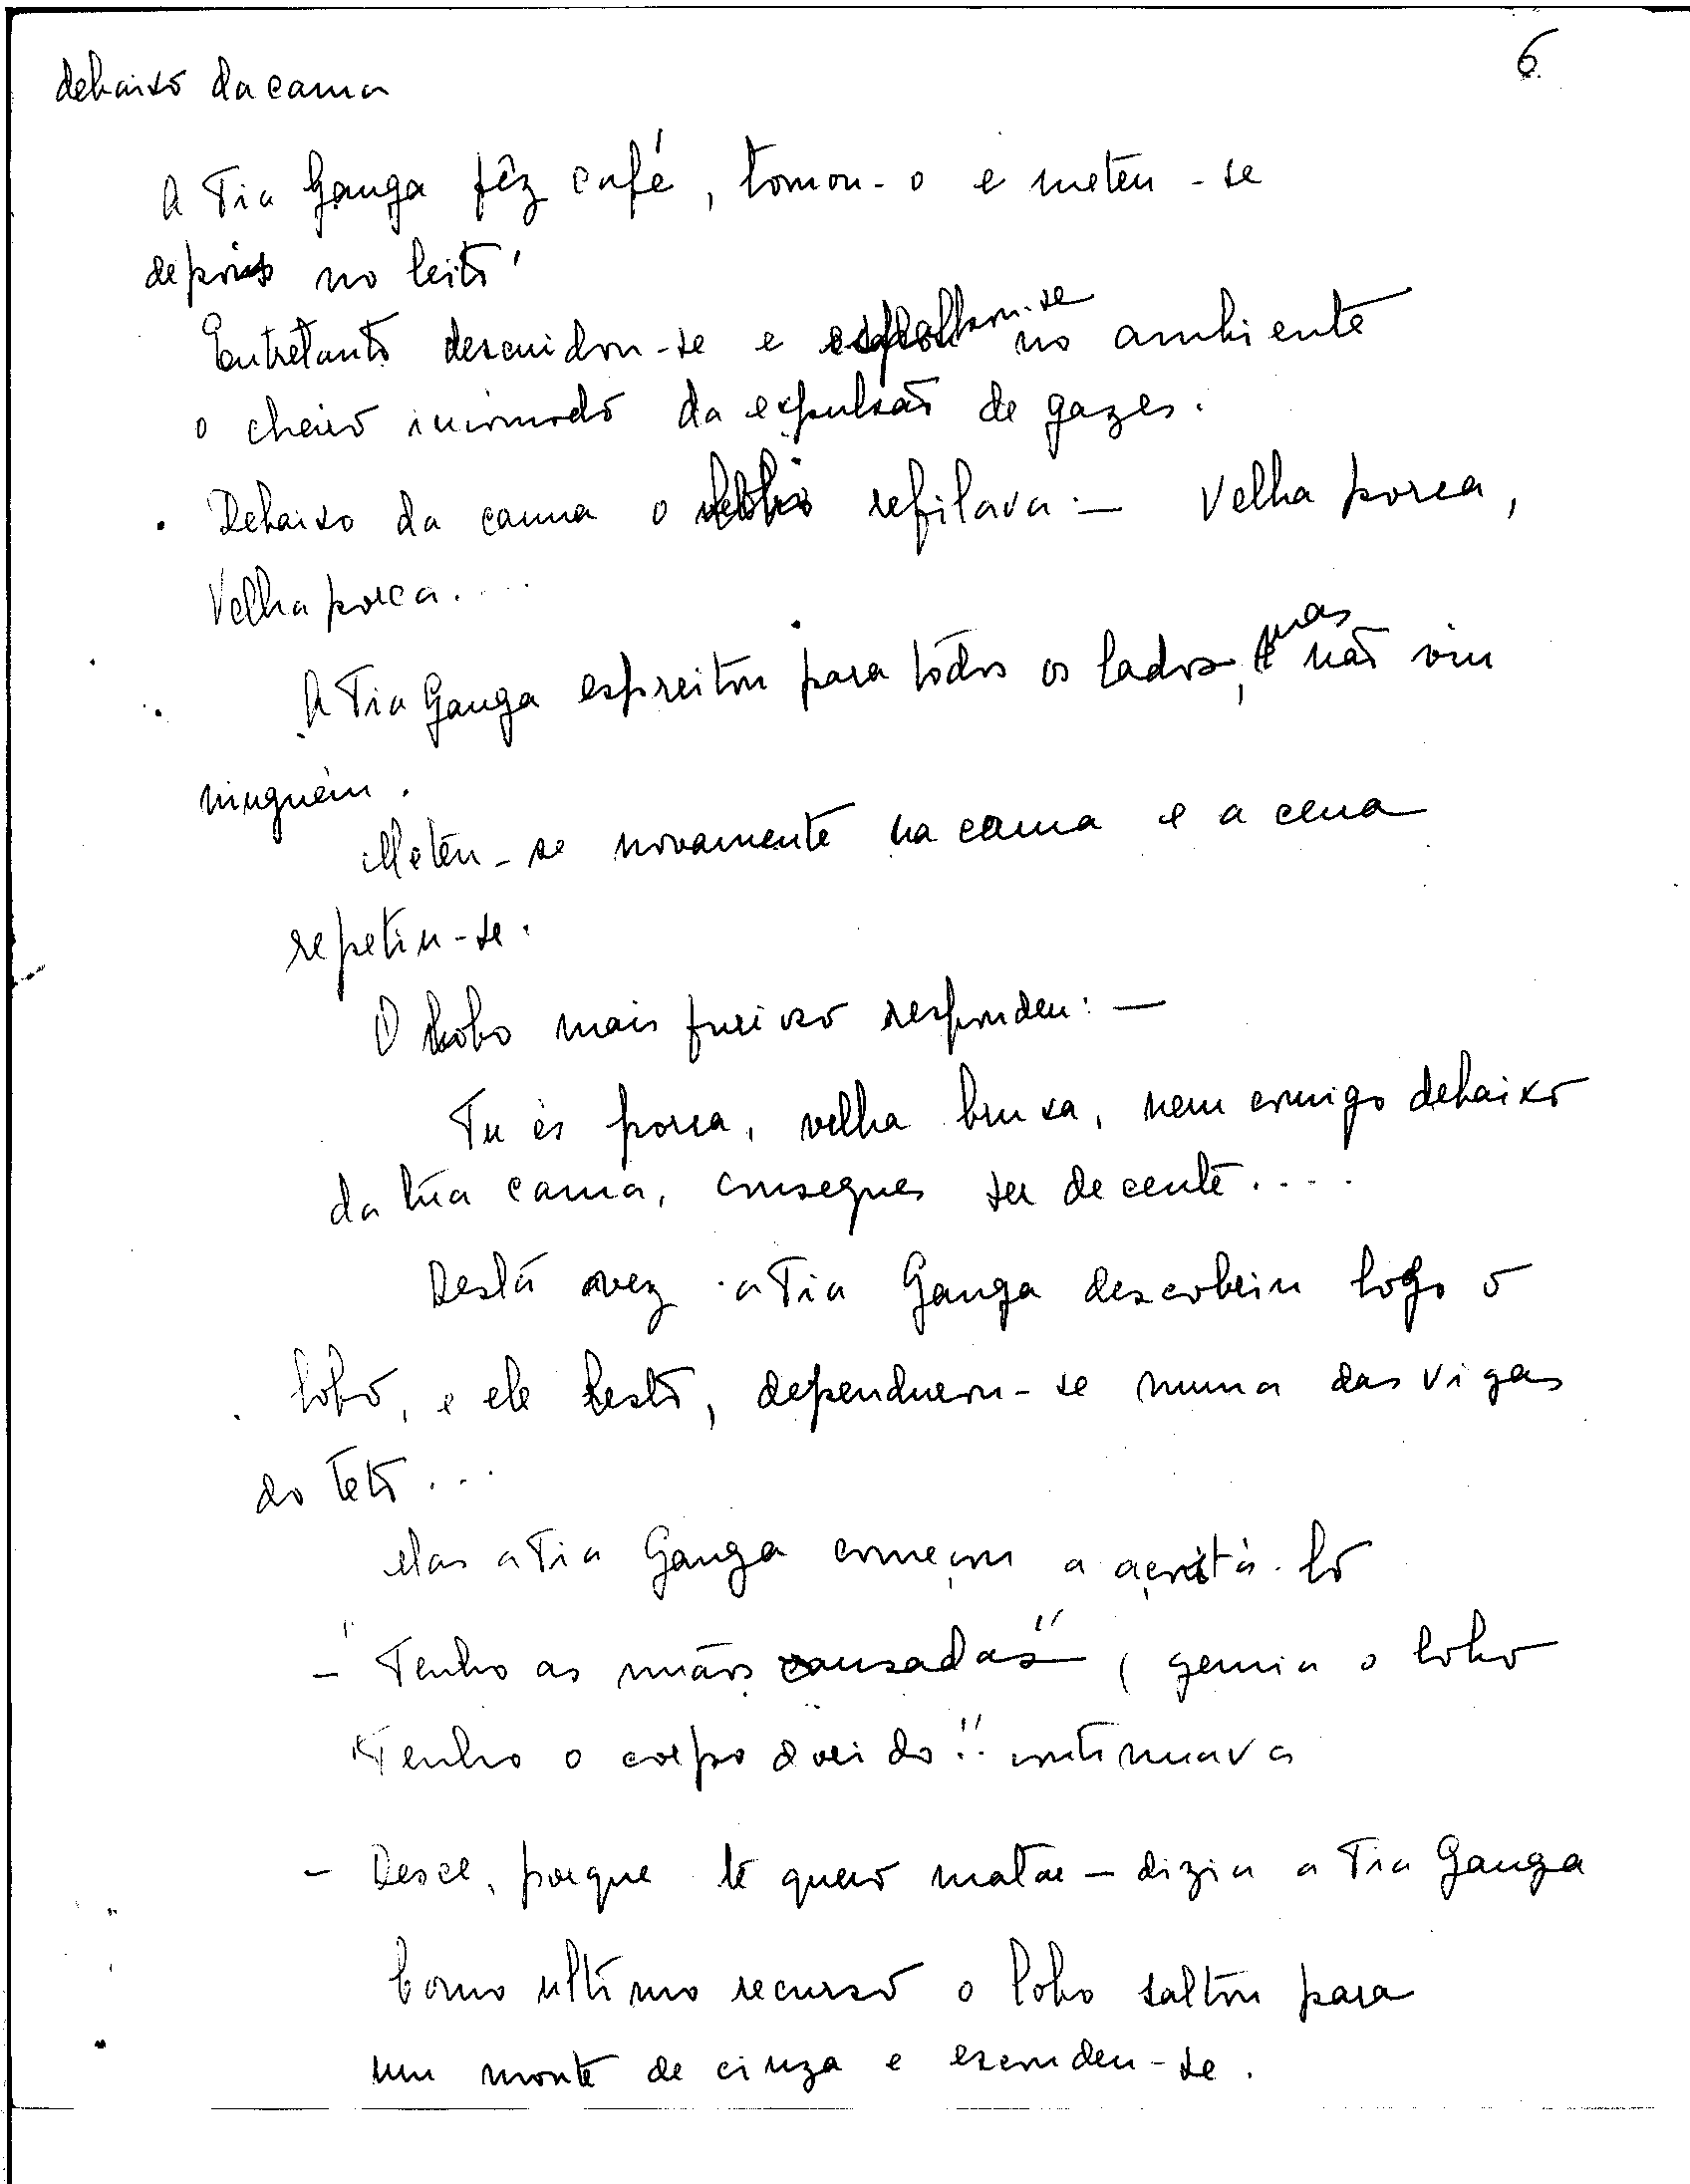 6
debaixo da cama
A Tia Ganga fêz café, tomou-o e meteu-se
depois no leito.
Entretanto descuidou-se e espalhou-se no ambiente
o cheiro incomodo da expulsão de gazes.
Debaixo da cama o lobo refilava: — Velha porca,
Velha porca....
A Tia Ganga espreitou para todos os lados, mas não viu
ninguém.
Meteu-se novamente na cama e a cena
repetiu-se.
O lobo mais furioso respondeu: —
Tu és porca, velha bruxa, nem comigo debaixo
da túa cama, consegues ser decente....
Desta vez a Tia Ganga descobriu logo o
lobo, e ele lesto, dependurou-se numa das vigas
do teto...
Mas a Tia Ganga começou a açoitá-lo
- "Tenho as mãos cansadas" (gemia o lobo
"Tenho o corpo doido!" continuava
- Desce, porque te quero matar — dizia a Tia Ganga
Como ultimo recurso o lobo saltou para
um monte de cinza e escondeu-se.